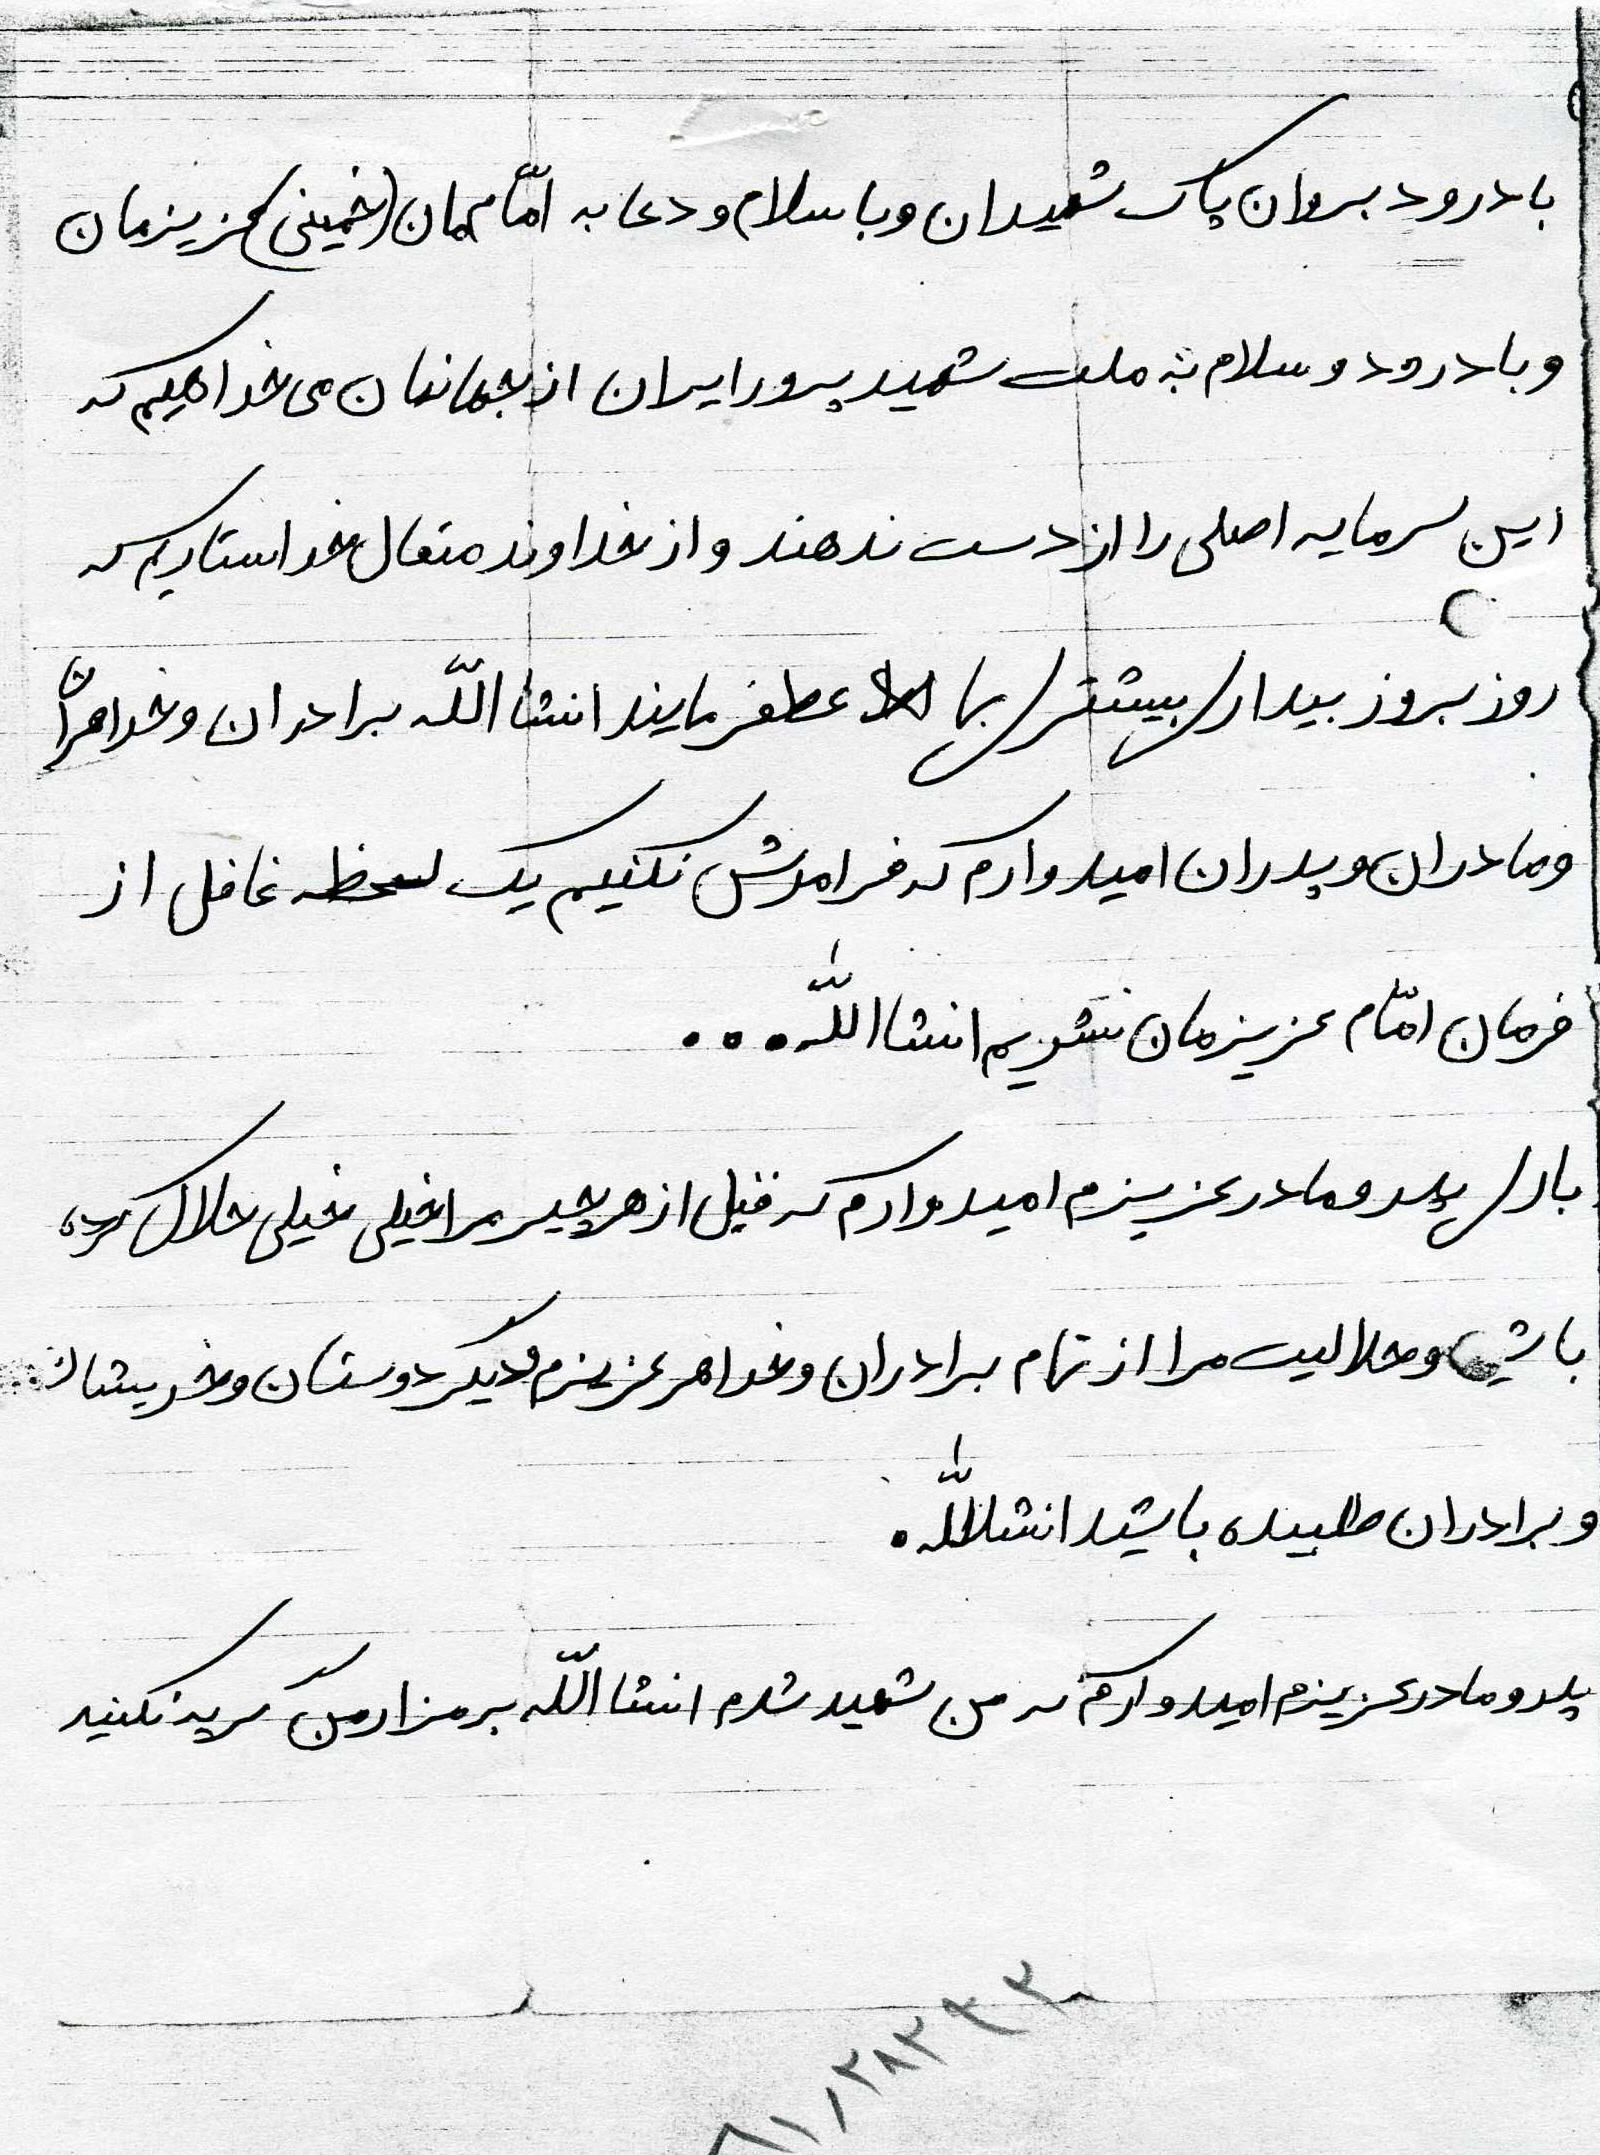 با درود بروان پاک شهیدان و با سلام و دعا به امّاممان (خمینی) عزیزمان
و با درود و سلام به ملت شهید پرور ایران از جهانمان می خواهیم که
این سرمایه اصلی را از دست ندهند و از خداوند متعال خواستاریم که
روز بروز بیداری بیشتری بما عطفرمایند انشاالله برادران و خواهران
و مادران و پدران امیدوارم که فراموش نکنیم یک لحظه غافل از
فرمان امّام عزیزمان نشویم انشاالله...
باری پدر و مادر عزیزم امیدوارم که قبل از هر چیر مرا خیلی خیلی حلال کرده
باشید و حلالیت مرا از تمام برادران و خواهر عزیزم و دیگر دوستان و خویشان
و برادران طلبیده باشید انشالله.
پدر و مادر عزیزم امیدوارم که من شهید شدم انشاالله بر مزار من گریه نکنید